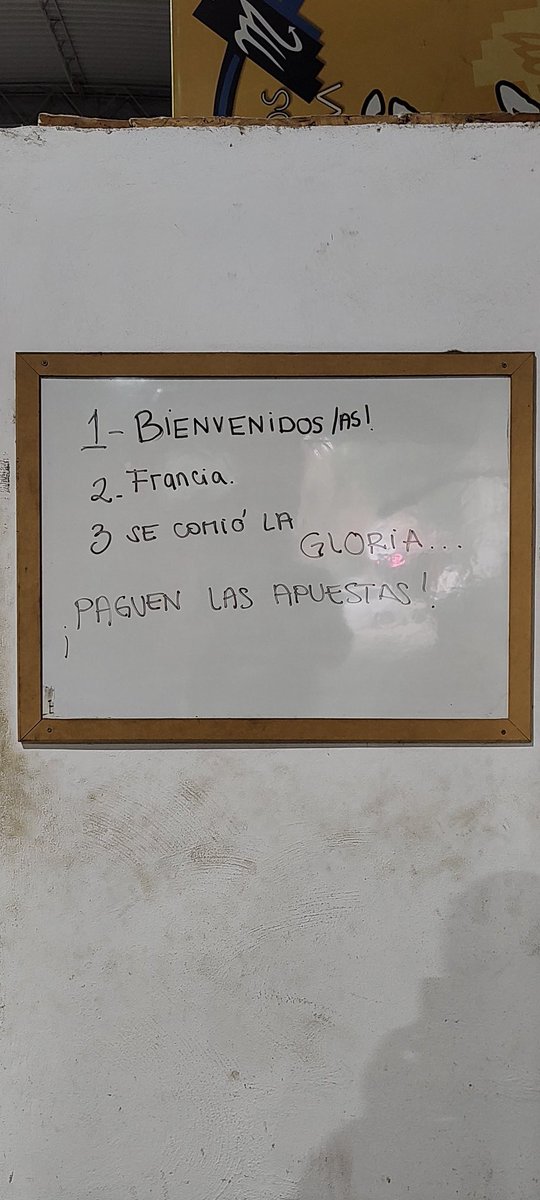 1- BIENVENIDOS/AS!
2- Francia.
3 SE COMIÓ LA GLORIA...
¡PAGUEN LAS APUESTAS!